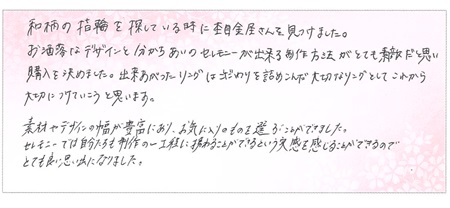 和柄の指輪を探している時に杢目金屋さんを見つけました。
お洒落なデザインと分かちあいのセレモニーが出来る制作方法がとても素敵だと思い
購入を決めました。出来あがったリングはこだわりを詰めこんだ大切なリングとしてこれから
大切につけていこうと思います。
素材やデザインの幅が豊富にあり、お気に入りのものを選ぶことができました。
セレモニーでは自分たちも制作の一工程に携わることができるという実感を感じることができるので
とても良い思い出になりました。